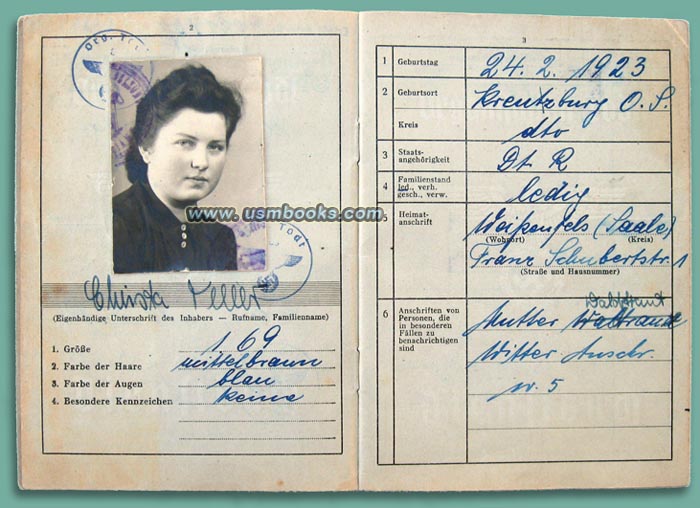 2
Org. Todt
www.usmbooks.com
Todt
Christa
(Eigenhändige Unterschrift des Inhabers — Rufname, Familienname)
1. Größe 1,69
2. Farbe der Haare mittelbraun
3. Farbe der Augen blau
4. Besondere Kennzeichen keine
3
1 Geburtstag 24. 2. 1923
2 Geburtsort Kreutzburg O.S.
Kreis dto
3 Staats-
angehörigkeit Dt. R
4 Familienstand
led., verh.
gesch., verw. ledig
Heimat-
anschrift Weißenfels (Saale)
(Wohnort) (Kreis)
Franz Schubertstr. 1
(Straße und Hausnummer)
6 Anschriften von
Personen, die
in besonderen
Fällen zu
benachrichtigen
sind
Mutter
w. 5